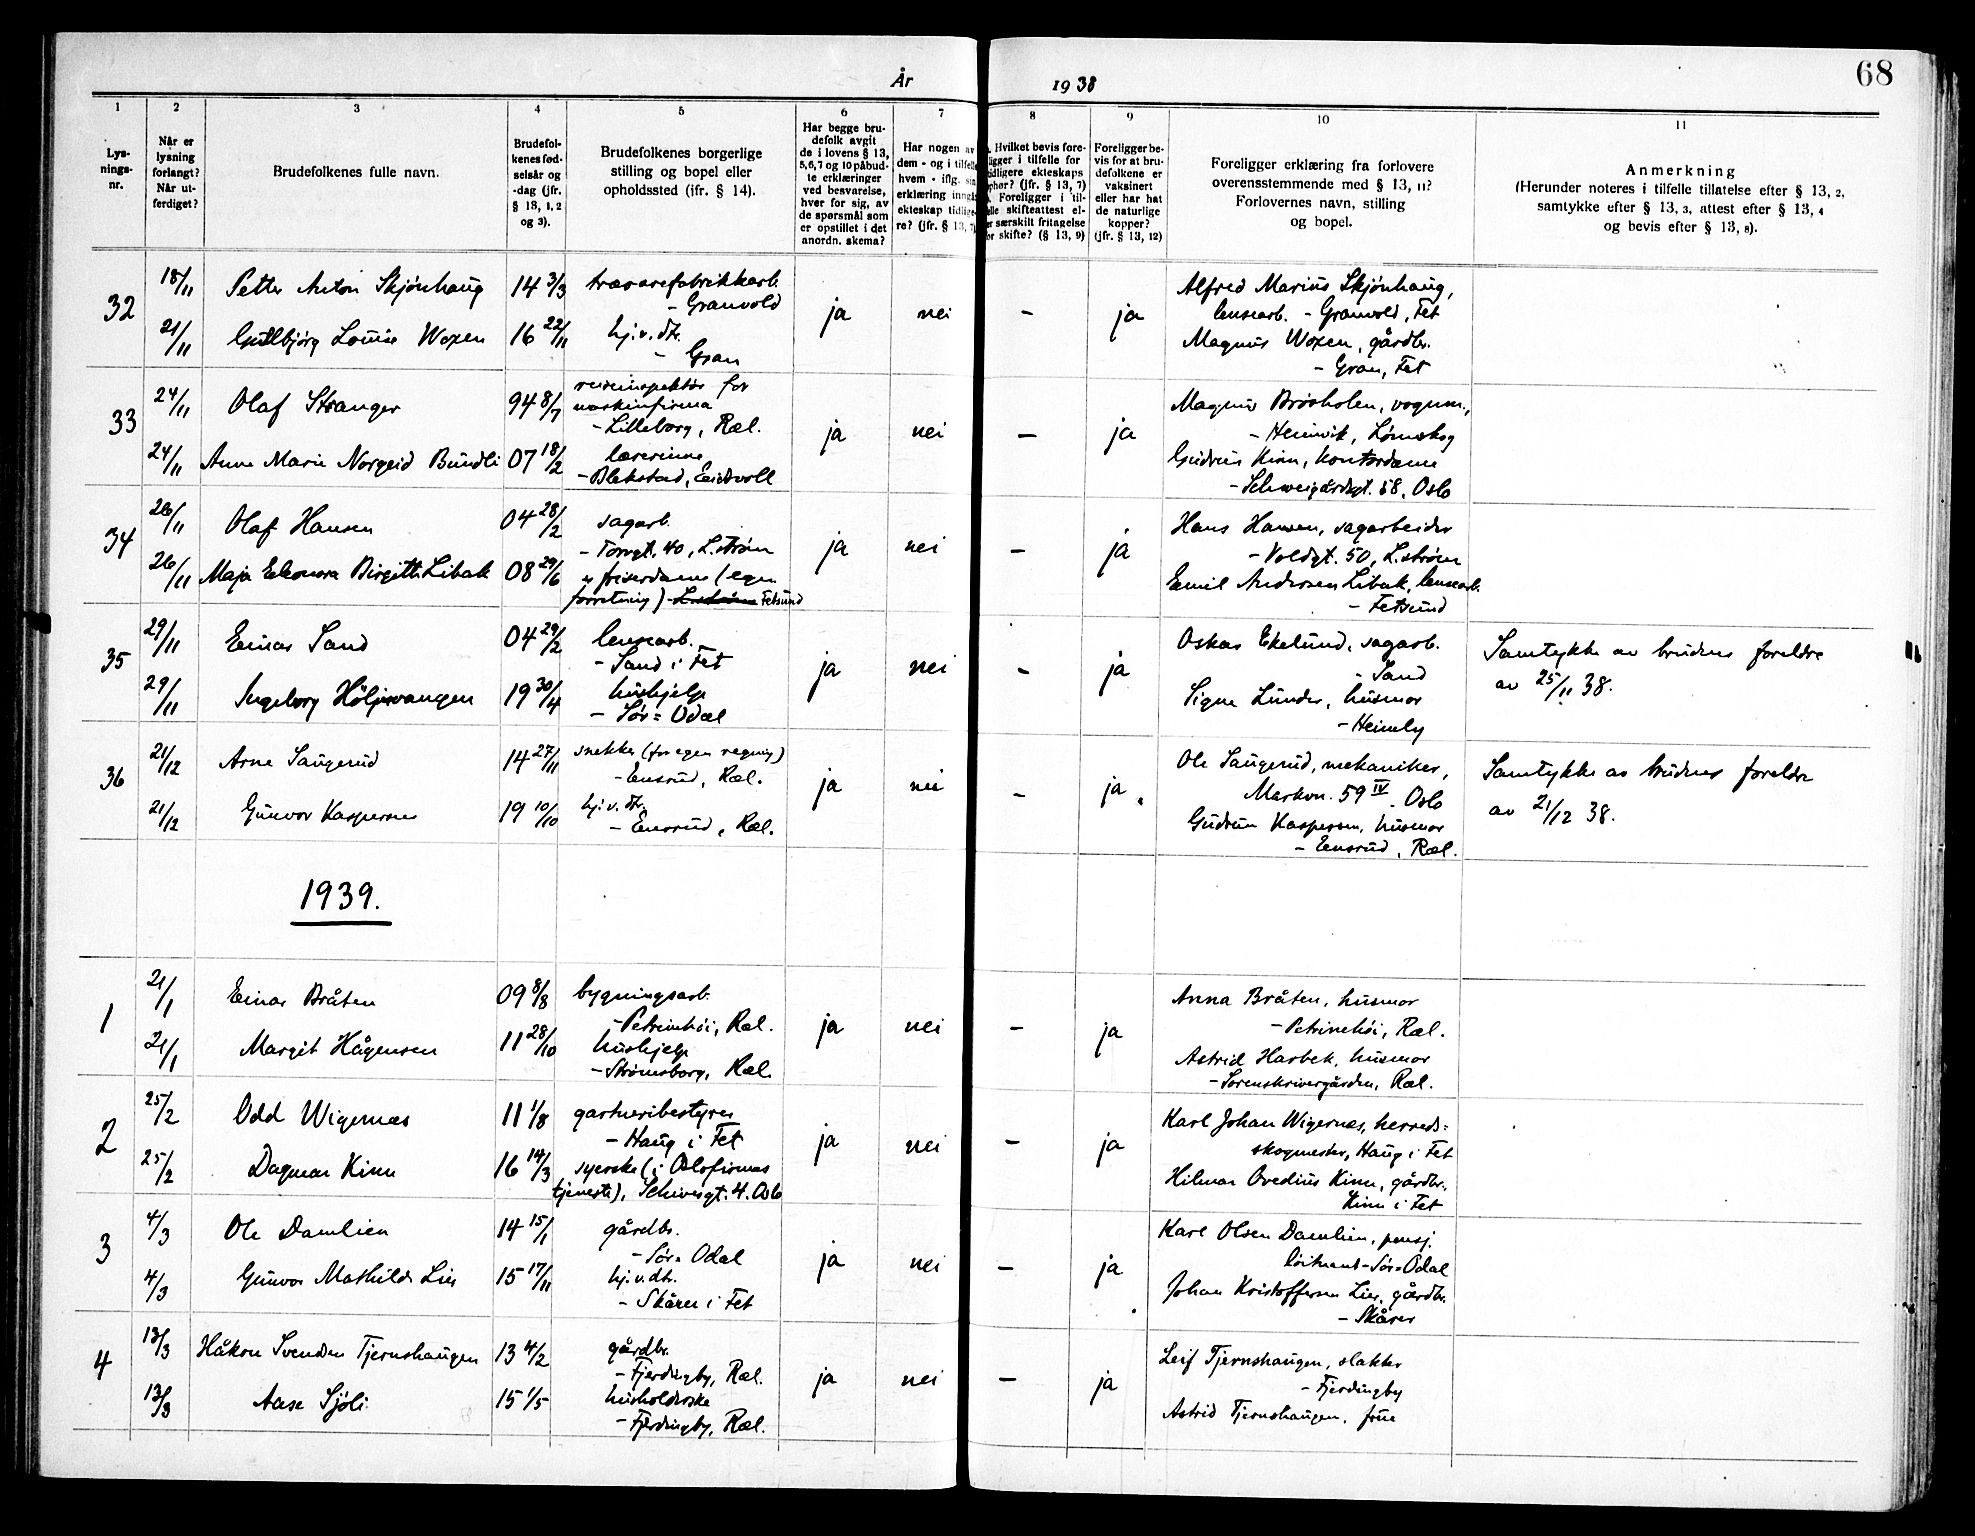 År 1938
68
1 2 3 4 5 6 7 8 9 10 11
Lys-
nings-
nr.
Når er
lysning
forlangt?
Når ut-
ferdiget?
Brudefolkenes fulle navn.
Brudefol-
kenes fød-
selsår og
-dag (jfr.
§ 13, 1, 2
og 3).
Brudefolkenes borgerlige
stilling og bopel eller
opholdssted (ifr. § 14).
Har begge bru-
defolk avgit
de i lovens § 13,
5,6,7 og 10 påbud-
te erklæringer
ved besvarelse,
hver for sig, av
de spørsmål som
er opstillet i det
anordn. skema?
Har nogen av
dem - og i tilfelle
hvem - iflg. sin
erklæring inngå
ekteskap tidlige-
re? (jfr. § 13, 7)
Hvilket bevis fore-
ligger i tilfelle for
tidligere ekteskaps
ophør? (jfr. § 13, 7)
Foreligger i til-
felle skifteattest el-
er særskilt fritagelse
for skifte? (§ 13, 9)
Foreligger be-
vis for at bru-
defolkene er
vaksinert
eller har hat
de naturlige
kopper?
(jfr. § 13, 12)
Foreligger erklæring fra forlovere
overensstemmende med § 13, 11?
Forlovernes navn, stilling
og bopel.
Anmerkning
(Herunder noteres i tilfelle tillatelse efter § 13, 2,
samtykke efter § 13, 3, attest efter § 13, 4
og bevis efter § 13, 8).
32 18/11 Petter Anton Skjønhaug 14 3/3 trævarefabrikkarb.
- Granvold ja nei - ja
Alfred Marius Skjønhaug,
lensearb. - Granvold, Fet
21/11 Gudbjørg Louise Woxen 16 22/11 hj.v. dtr.
- Gran
Magnus Woxen, gårdbr.
- Gran, Fet
33 24/11 Olaf Stranger 94 8/7 reiseinspektør for
maskinfirma
- Lilleborg, Ræl. ja nei - ja
Magnus Brøsholen, vognm.,
- Heimvik, Lørenskog
24/11 Anne Marie Norgeid Bundli 07 18/2 lærerinne
- Blekstad, Eidsvoll
Gudrun Kinn, kontordame
- Schweigårdsgt. 58, Oslo
34 26/11 Olaf Hansen 04 28/2 sagarb.
- Torvgt. 40, L.strøm ja nei - ja
Hans Hansen, sagarbeider
- Voldgt. 50, L.strøm
26/11 Maja Eleonora Birgitte Libak 08 29/6 friserdame (egen
forretning) - L.strøm Fetsund
Emil Andersen Libak, lensearb.
- Fetsund
35 29/11 Einar Sand 04 29/2 lensearb.
- Sand i Fet ja nei - ja
Oskar Ekelund, sagarb.
- Sand
Samtykke av brudens foreldre
av 25/11 38.
29/11 Ingeborg Höljervangen 19 30/4 hushjelp
- Sør=Odal
Signe Lunder, husmor
- Heimly
36 21/12 Arne Saugerud 14 27/11 snekker (for egen regning)
- Ensrud, Ræl. ja nei - ja
Ole Saugerud, mekaniker,
Markvn. 59 IV, Oslo
Samtykke av brudens foreldre
av 21/12 38.
21/12 Gunvor Kaspersen 19 10/10 hj. v. dtr.
- Ensrud, Ræl.
Gudrun Kaspersen, husmor
- Ensrud, Ræl.
1939.
1 21/1 Einar Bråten 09 8/8 bygningsarb.
- Petrinehøi, Ræl. ja nei - ja
Anna Bråten, husmor
- Petrinehøi, Ræl.
21/1 Margit Hågensen 11 28/10 hushjelp
- Strømsborg, Ræl.
Astrid Harbek, husmor
- Sorenskrivergården, Ræl.
2 25/2 Odd Wigernæs 11 1/8 gartneribestyrer
- Haug i Fet ja nei - ja
Karl Johan Wigernæs, herreds=
skogmester, Haug i Fet
25/2 Dagmar Kinn 16 14/3 syerske (i Oslofirmas
tjeneste), Schivesgt. 4. Oslo
Hilmar Ovedius Kinn, gårdbr.
Kinn i Fet
3 4/3 Ole Damlien 14 15/1 gårdbr.
- Sør=Odal ja nei - ja
Karl Olsen Damlien, pensj.
løitnant - Sør=Odal
4/3 Gunvor Mathilde Lier 15 17/11 hj.v.dtr.
- Skårer i Fet
Johan Kristoffersen Lier, gårdbr.
- Skårer
4 13/3 Håkon Svendsen Tjernshaugen 13 4/2 gårdbr.
- Fjerdingby, Ræl. ja nei - ja
Leif Tjernshaugen, slakter
- Fjerdingby
13/3 Aase Sjöli 15 1/5 husholderske
- Fjerdingby, Ræl.
Astrid Tjernshaugen, frue